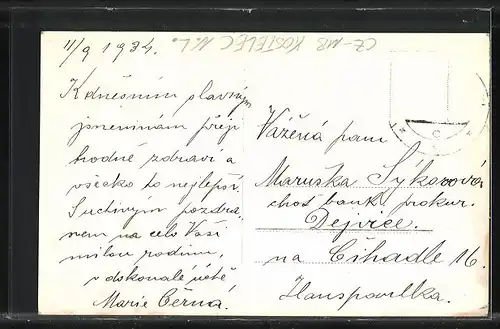 11/9 1934.
CZ-MB KOSTELEC N.L.
K dnešním slavným
jmeninám přeji
hodně zdraví a
všecko to nejlepší.
S uctivým pozdra-
vem na celou Vaši
milou rodinu,
v dokonalé úctě
Marie Černá.
Vážená paní
Maruška Sýkorová
choť bank. prokur.
Dejvice.
na Čihadle 16.
Hanspaulka.